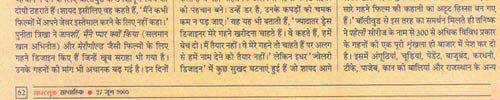 दोषी ठहराते हैं। शायद इसीलिए वह कहते हैं, 'मैंने कभी
फिल्मों में अपने जेवर इस्तेमाल करने के लिए नहीं कहा।'
पुनीता त्रिखा ने जानशीं, मैंने प्यार क्यों किया (सलमान
खान अभिनीत) और मेरीगोल्ड जैसी फिल्मों के लिए
गहने डिजाइन किए हैं जिन्हें खूब सराहा भी गया है।
उनके गहनों की मांग भी अचानक बढ़ गई है। इन दिनों
को पहचान बने। उन्हें डर है, उनके कपड़ों की चमक
कम न पड़ जाए।' वह यह भी बताती हैं, 'ज्यादातर ड्रेस
डिजाइनर मेरे गहने खरीदना चाहते हैं। वे कहते हैं, हमें
बेच दो। मैं तैयार नहीं। वे मेरे गहने तो चाहते हैं पर अलग
से हमें नाम देने को तैयार नहीं।' लेकिन इधर 'ज्वेलरी
डिजाइन' में कुछ सुखद घटनाएं हुई हैं जो शायद आगे
सारे गहने फिल्म की कहानी का अटूट हिस्सा बन गए
हैं।' बॉलीवुड से इस तरह का समर्थन मिलते ही तनिष्क
ने पहेली सीरीज के नाम से 300 से अधिक विविध प्रकार
के गहनों की एक पूरी शृंखला ही बाजार में पेश कर दी
है। इसमें अंगूठियां, चूड़ियां, पेंडेंट, बाजूबंद, करधनी,
टीके, पाजेब, कान की बालियां और राजस्थान के अन्य
62 आउटलुक साप्ताहिक • 27 जून 2005